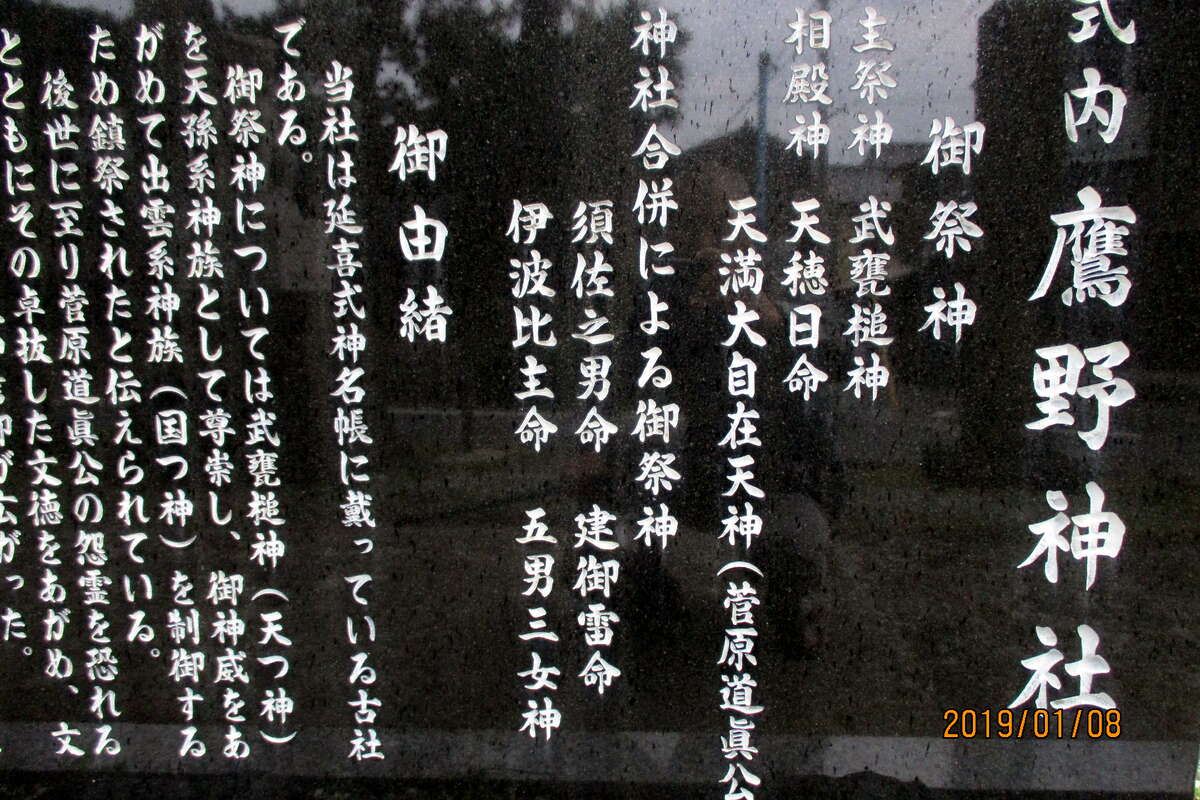 式内 鷹野神社
御祭神
主祭神 武甕槌神
相殿神 天穂日命
天満大自在天神（菅原道眞公
神社合併による御祭神
須佐之男命 建御雷命
伊波比主命 五男三女神
御由緒
当社は延喜式神名帳に戴っている古社
である。
御祭神については武甕槌神（天つ神）
を天孫系神族として尊崇し、御神威をあ
がめて出雲系神族（国つ神）を制御する
ため鎮祭されたと伝えられている。
後世に至り菅原道眞公の怨霊を恐れる
とともにその卓抜した文徳をあがめ、文
が広がった。
2019/01/08